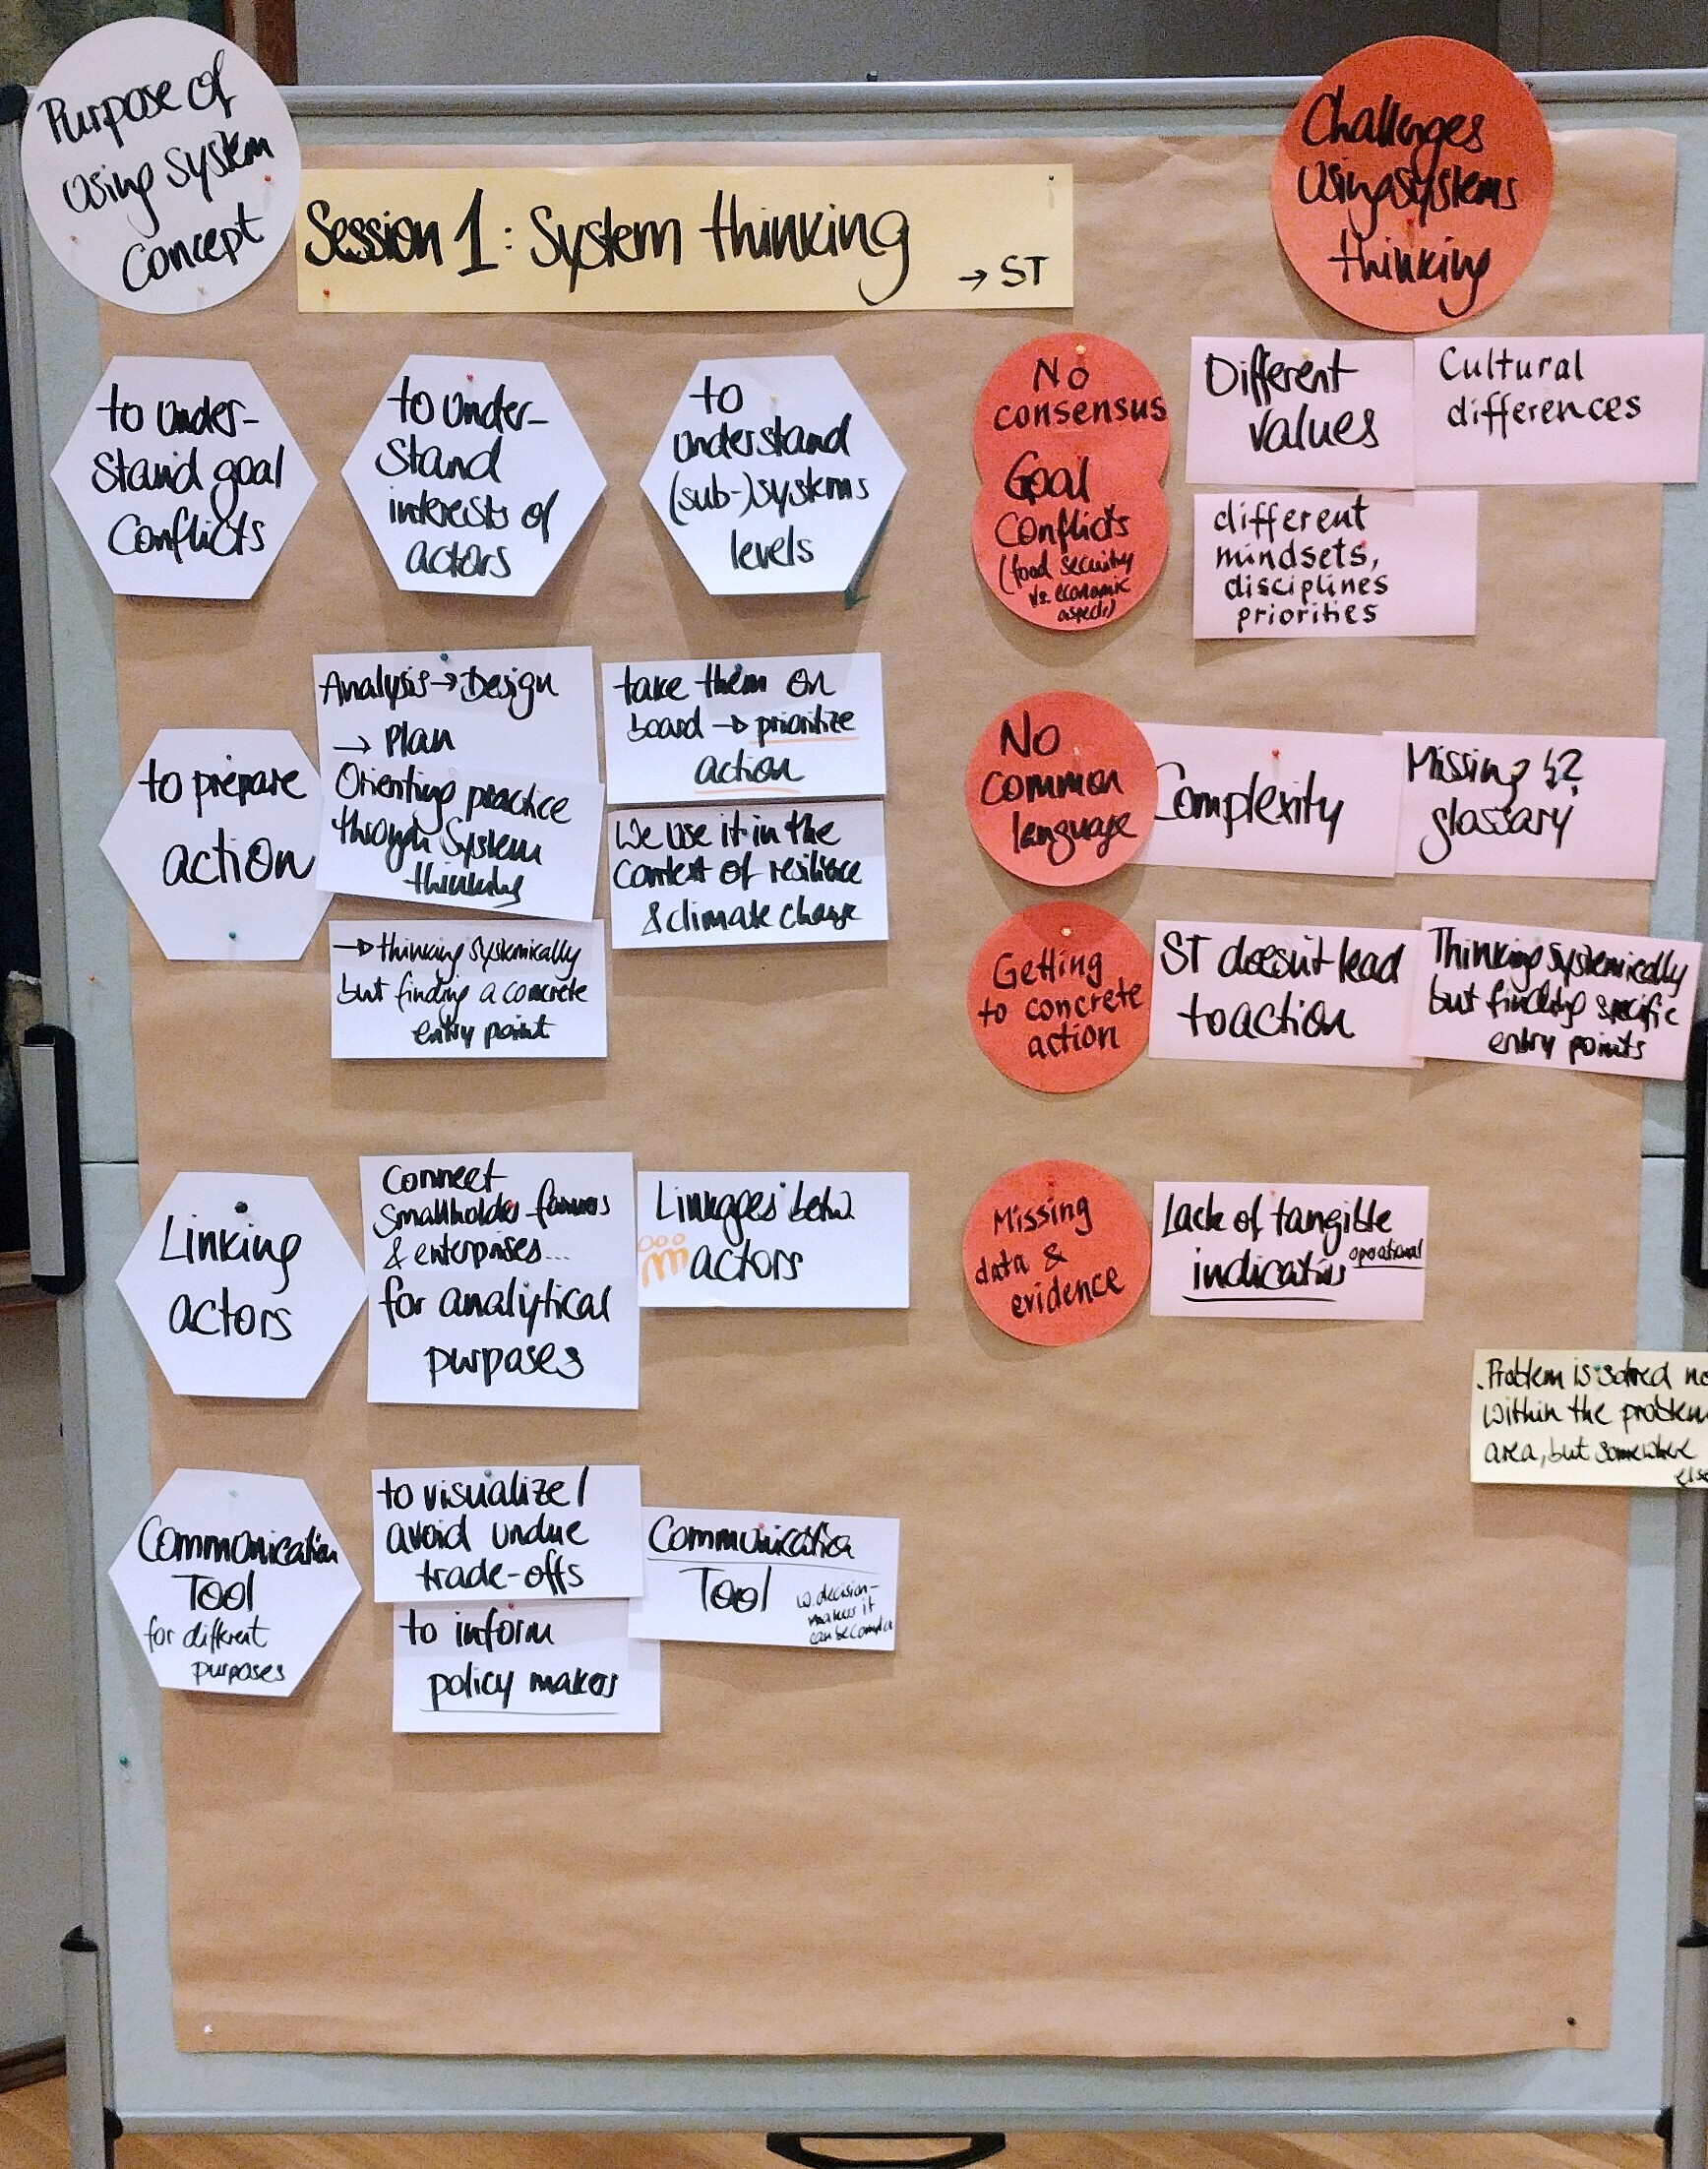 Purpose of
using system
concept
Session 1: System thinking
→ ST
Challenges
using systems
thinking
to under-
stand goal
conflicts
to under-
stand
interests of
actors
to
understand
(sub-)systems
levels
No
consensus
Goal
Conflicts
(food security
vs. economic
aspects)
Different
values
Cultural
differences
different
mindsets,
disciplines
priorities
to prepare
action
Analysis → Design
→ Plan
Orienting practice
through system
thinking
→ thinking systemically
but finding a concrete
entry point
take them on
board → prioritize
action
We use it in the
context of resilience
& climate change
No
common
language
Complexity
Missing
glossary
Getting
to concrete
action
ST doesn't lead
to action
Thinking systemically
but finding specific
entry points
Linking
actors
Connect
smallholder farmers
& enterprises...
for analytical
purposes
Linkages betw.
actors
Missing
data &
evidence
Lack of tangible
operational
indicators
.Problem is solved no
within the problem
area, but somewhere
else
Communication
Tool
for different
purposes
to visualize/
avoid undue
trade-offs
to inform
policy makers
Communication
Tool
w. decision-
makers it
can be